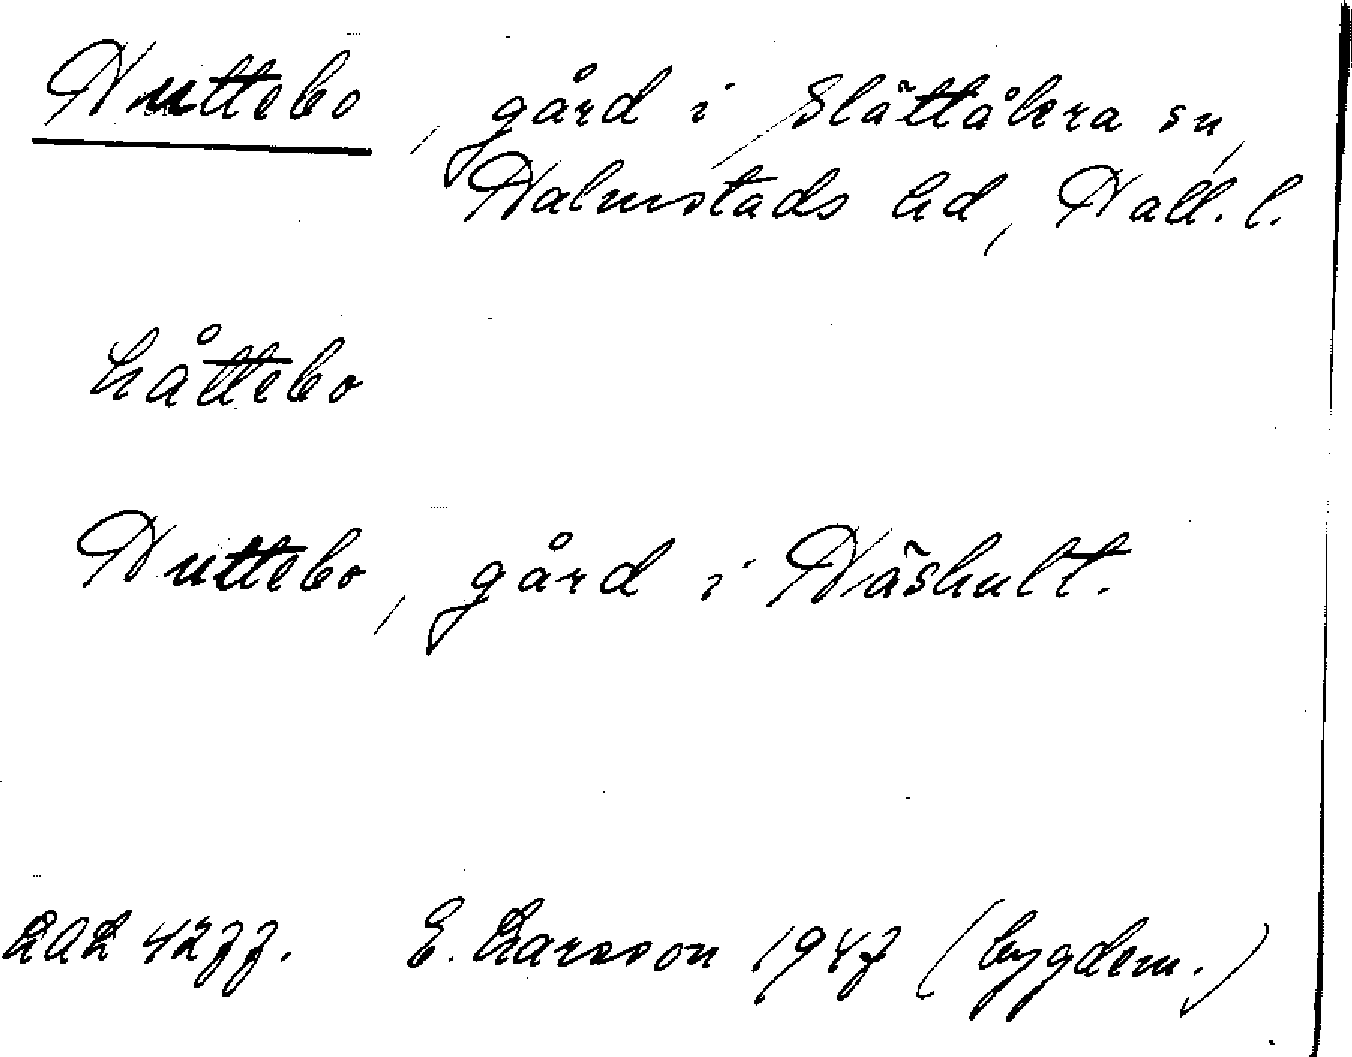 Huttebo, gård i Slättåkra sn,
Halmstads hd, Hall. l.
håttebo
Huttebo, gård i Häshult.
LAL 4277. E. Larsson 1947 (bygdem.)